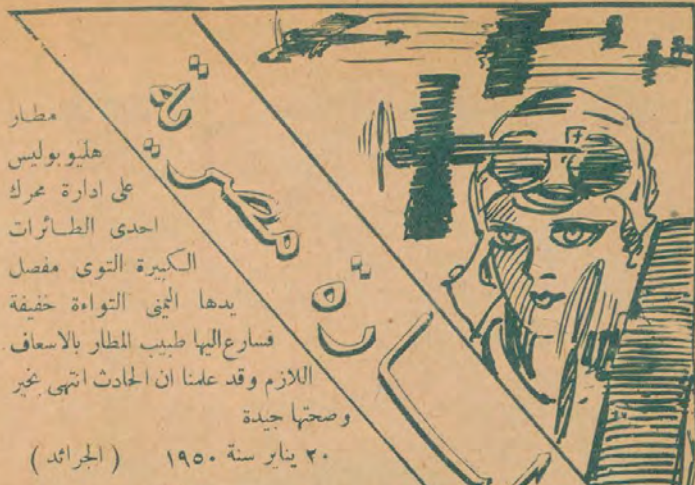 مصرية
مطار
هليوبوليس
على ادارة محرك
احدى الطائرات
الكبيرة التوى مفصل
يدها اليمنى التواءة خفيفة
فسارع اليها طبيب المطار بالاسعاف
اللازم وقد علمنا ان الحادث انتهى بخير
وصحتها جيدة
٢٠ يناير سنة ١٩٥٠ ( الجرائد )